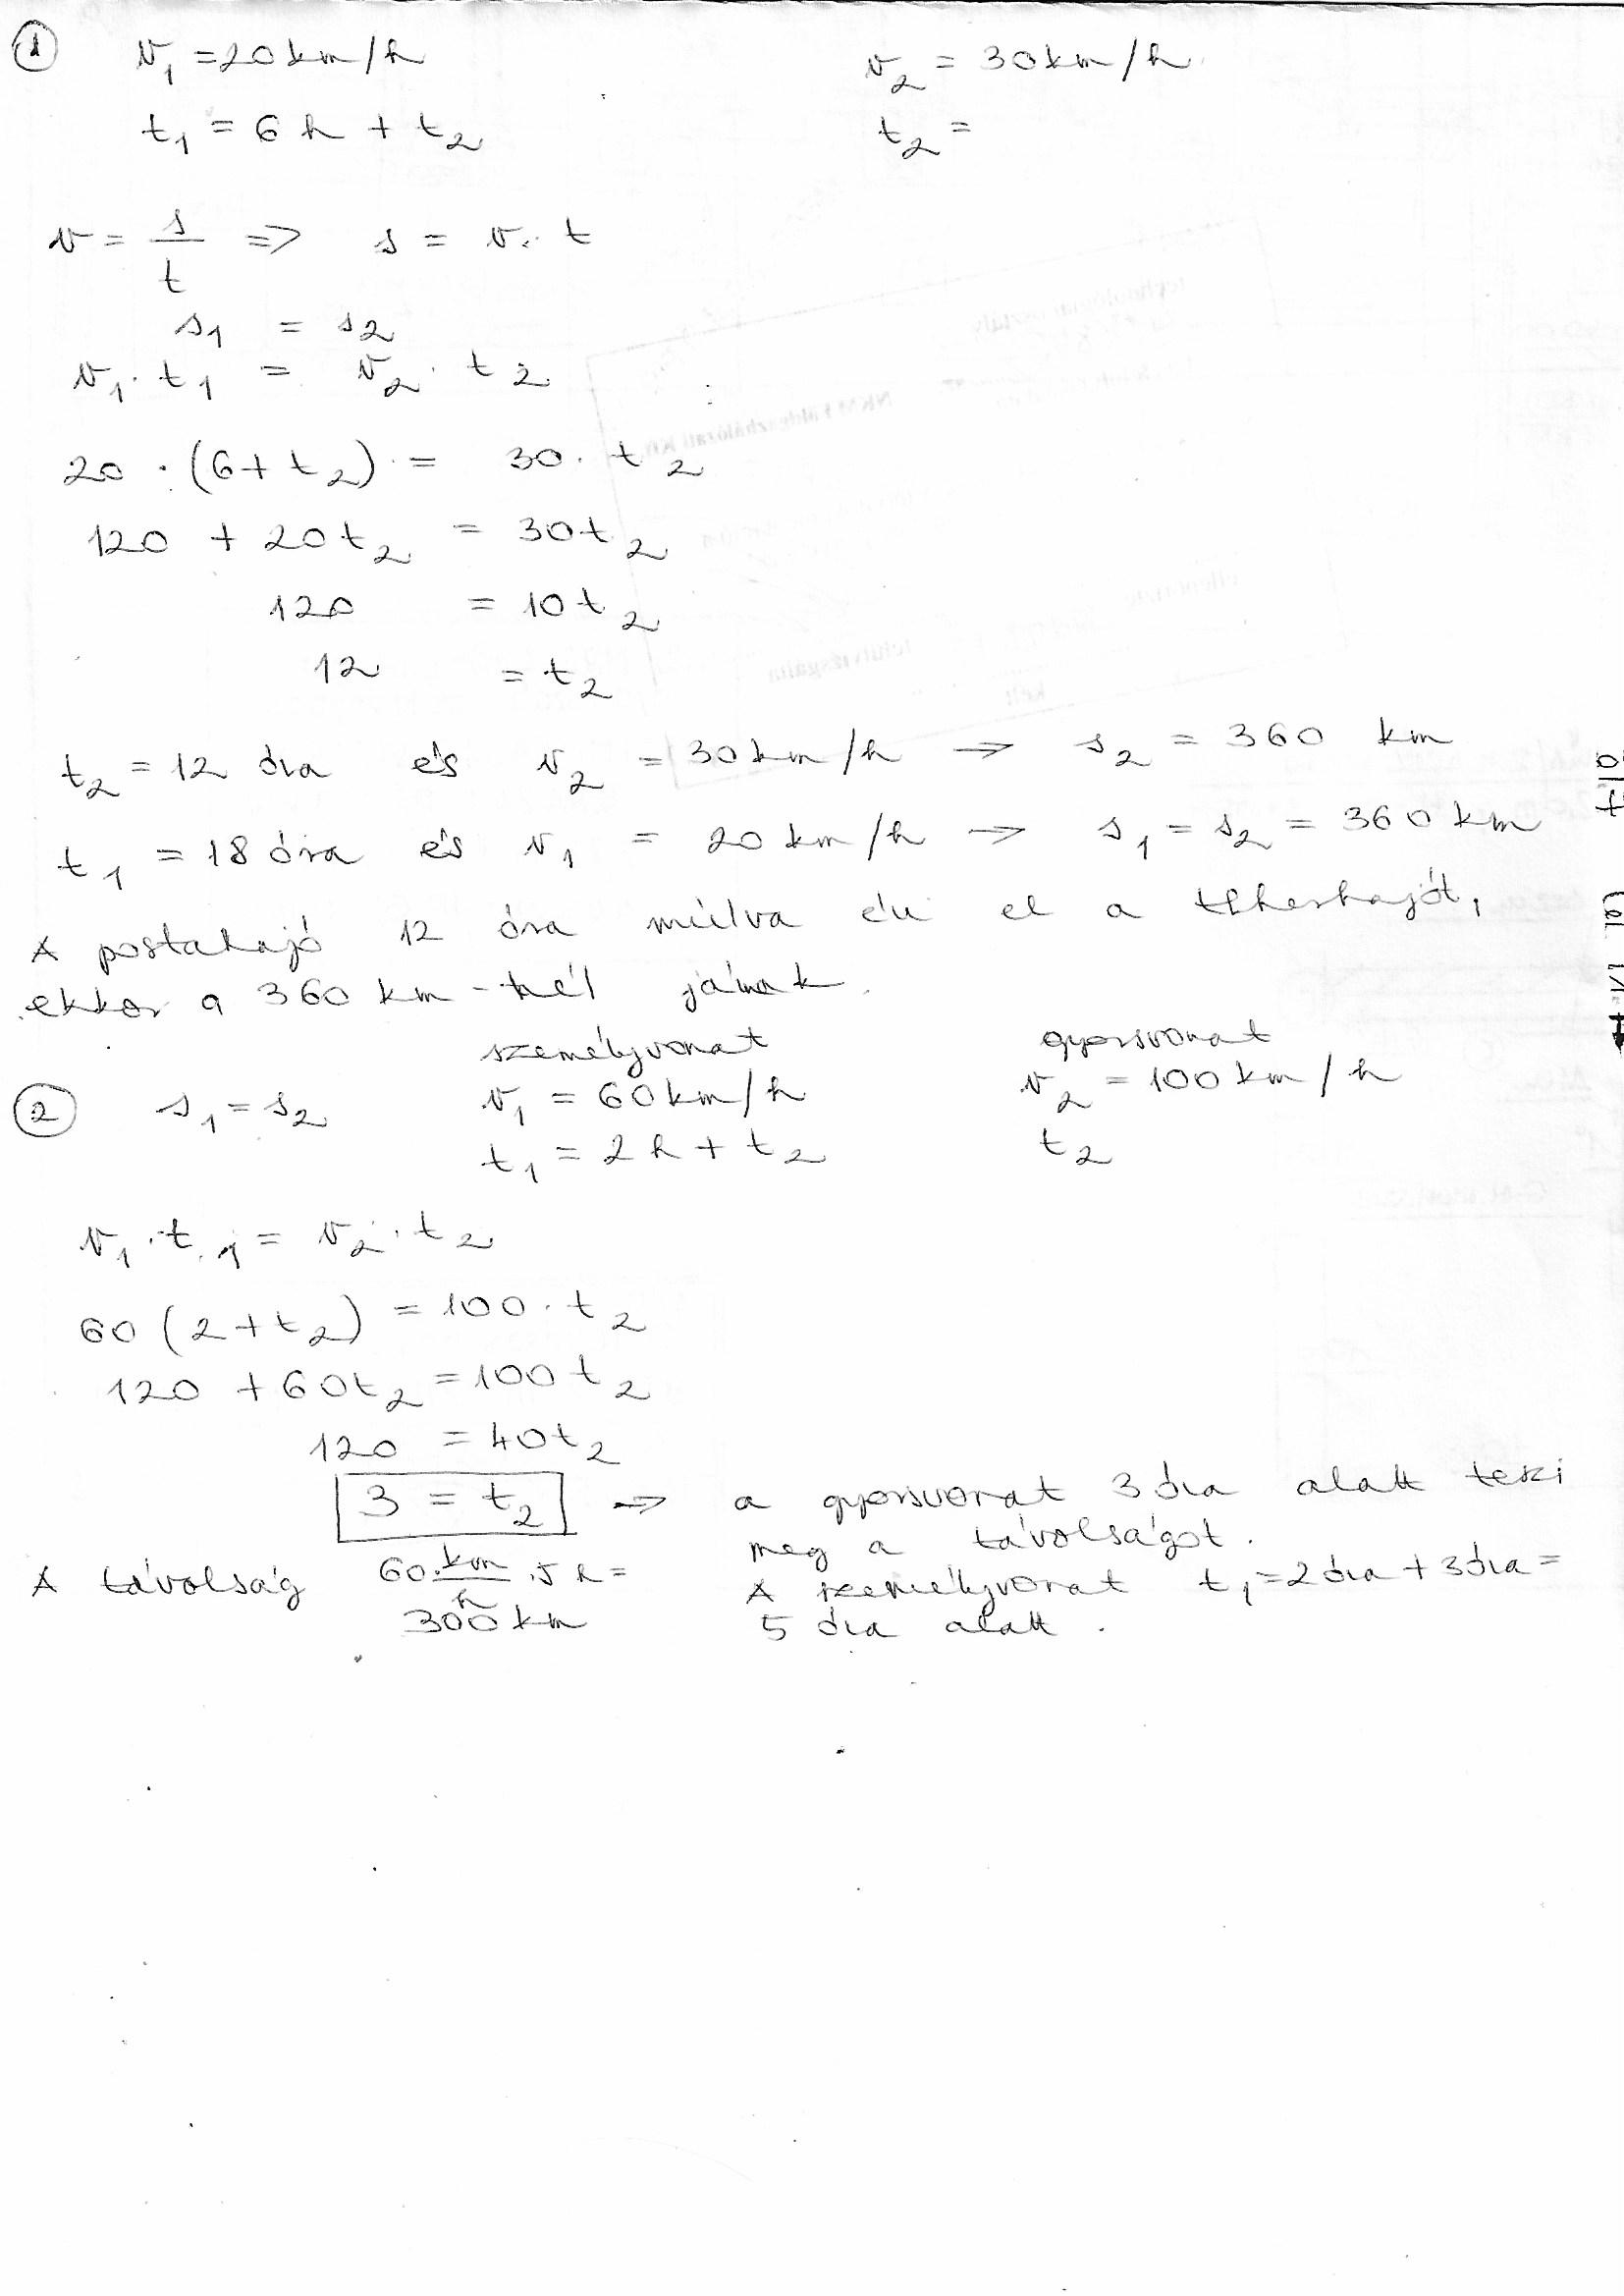 1 v₁ = 20 km/h v₂ = 30 km/h
t₁ = 6 h + t₂ t₂ =
v = s/t => s = v · t
s₁ = s₂
v₁ · t₁ = v₂ · t₂
20 · (6 + t₂) = 30 · t₂
120 + 20t₂ = 30t₂
120 = 10t₂
12 = t₂
t₂ = 12 óra és v₂ = 30 km/h → s₂ = 360 km
t₁ = 18 óra és v₁ = 20 km/h → s₁ = s₂ = 360 km
A postahajó 12 óra múlva éri el a teherhajót,
ekkor a 360 km-nél járnak.
személyvonat gyorsvonat
2 s₁ = s₂ v₁ = 60 km/h v₂ = 100 km/h
t₁ = 2 h + t₂ t₂
v₁ · t₁ = v₂ · t₂
60 (2 + t₂) = 100 · t₂
120 + 60t₂ = 100t₂
120 = 40t₂
3 = t₂ => a gyorsvonat 3 óra alatt teszi
meg a távolságot.
A távolság 60 · km/h · 5 h =
300 km
A személyvonat t₁ = 2 óra + 3 óra =
5 óra alatt.